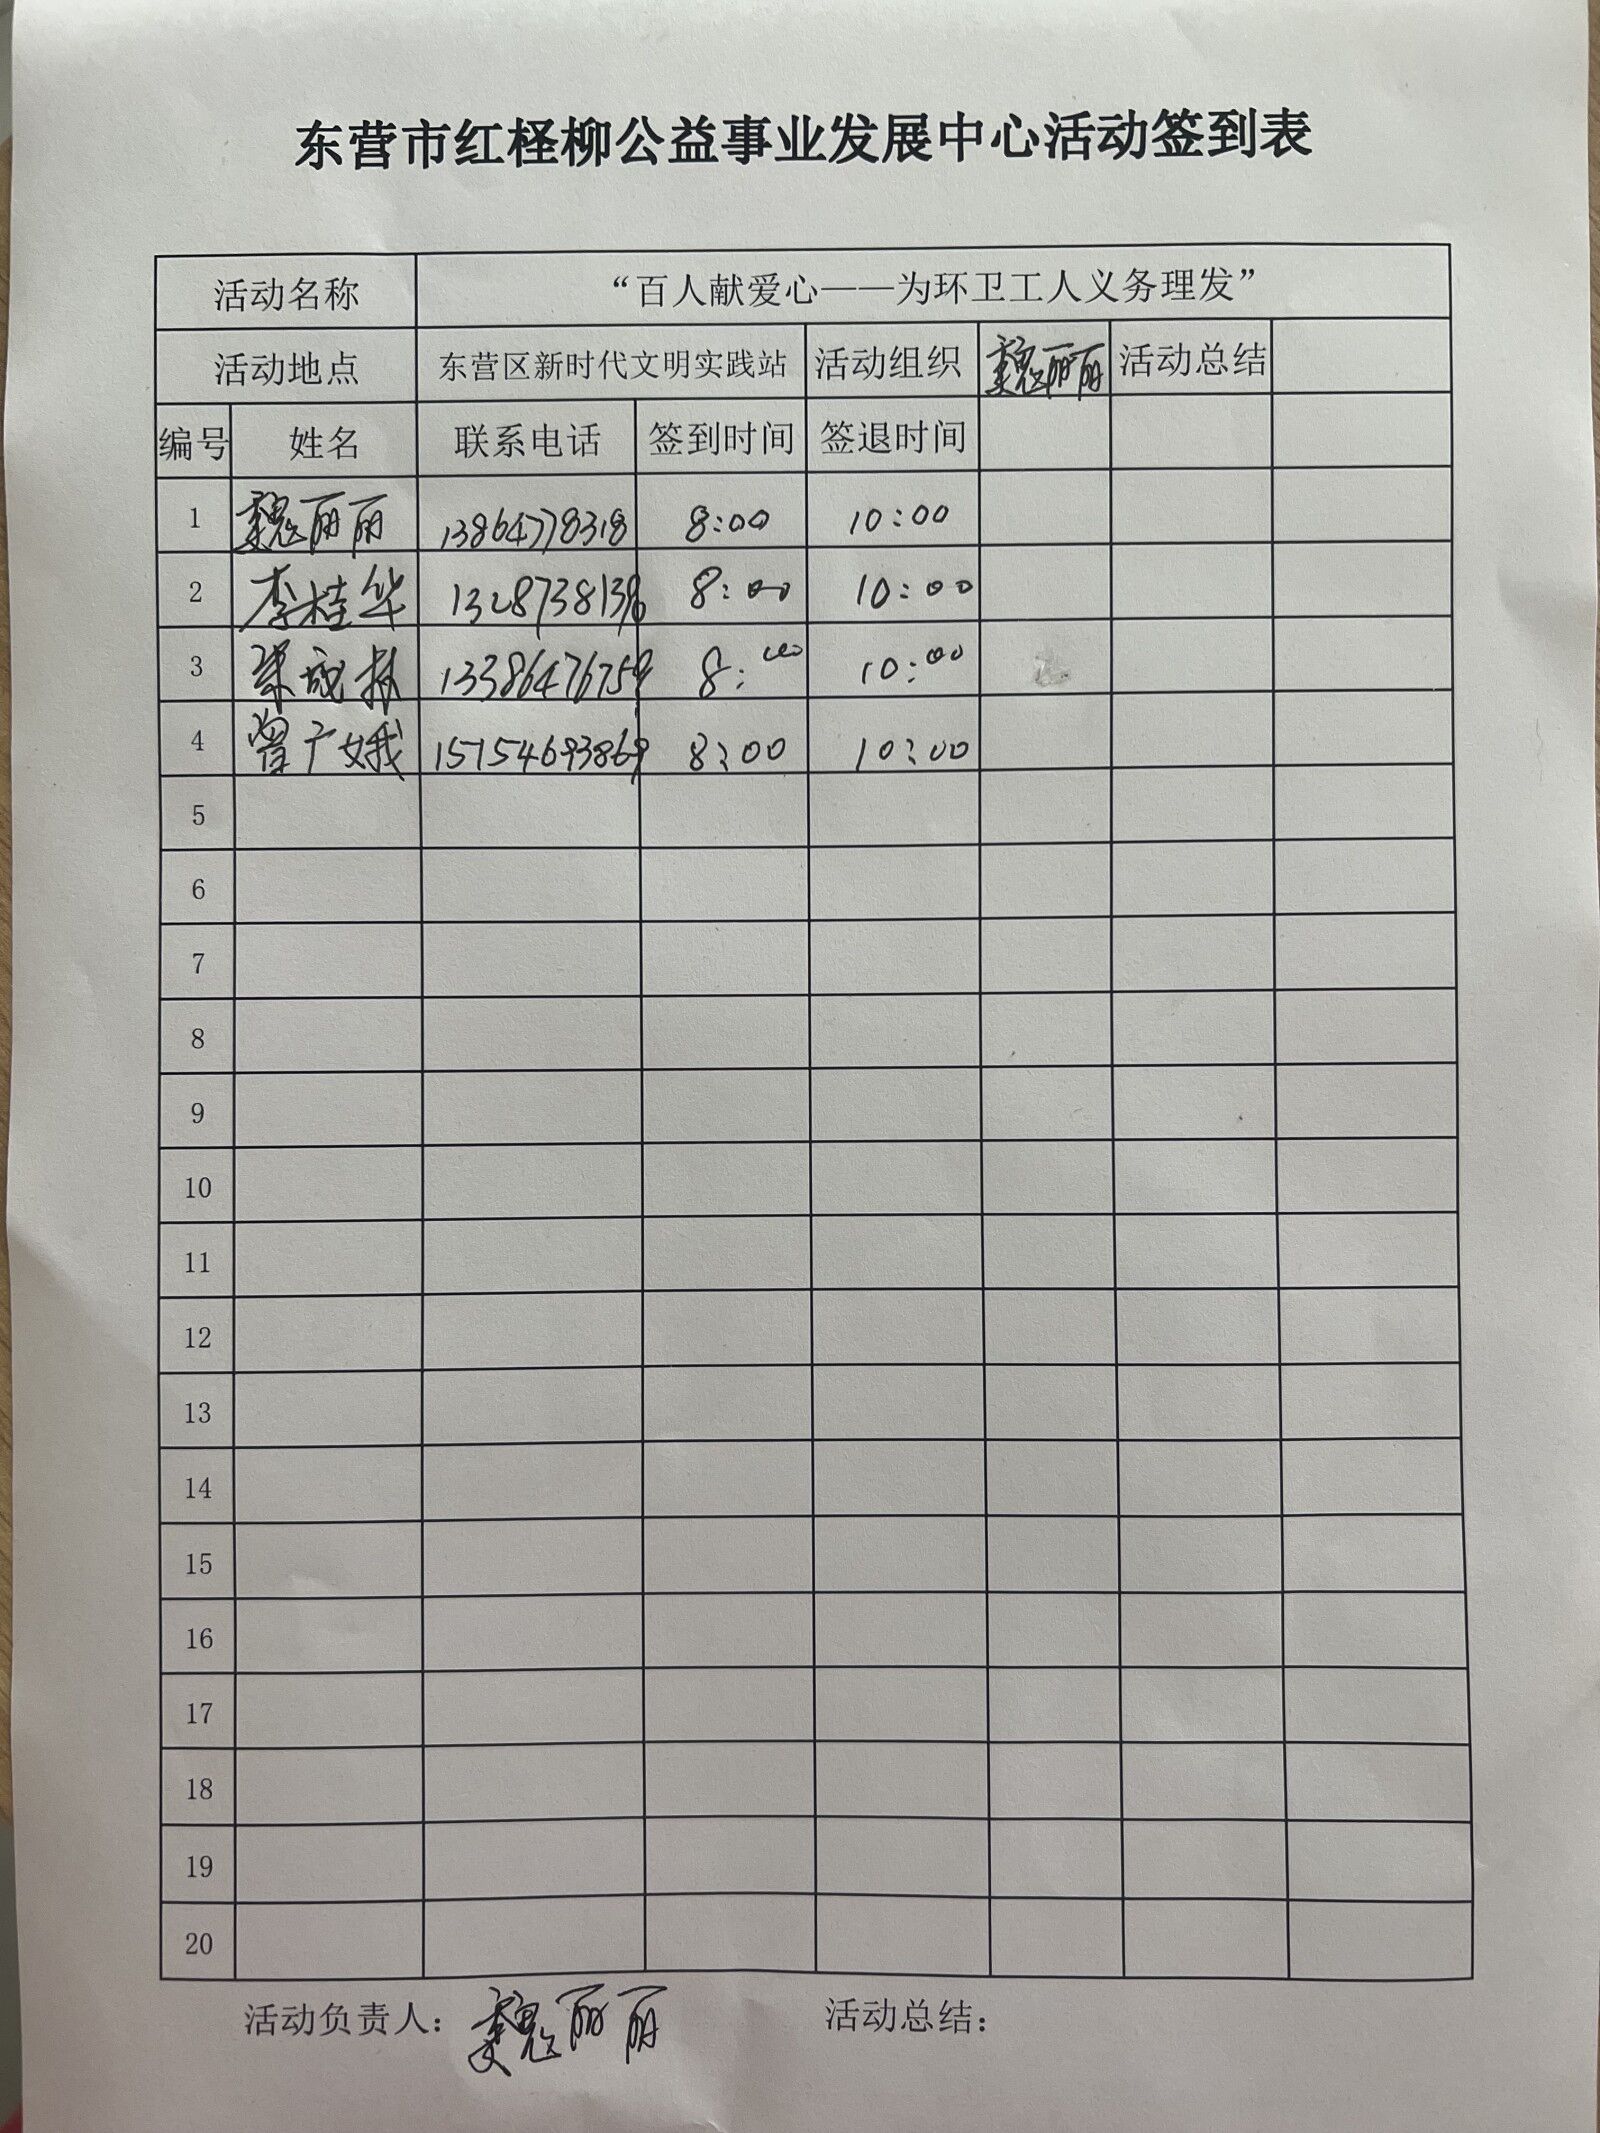 东营市红柽柳公益事业发展中心活动签到表
活动名称 “百人献爱心——为环卫工人义务理发”
活动地点 东营区新时代文明实践站 活动组织 魏丽丽 活动总结
编号 姓名 联系电话 签到时间 签退时间
1 魏丽丽 13864778318 8:00 10:00
2 李桂华 8:00 10:00
3 13386476759 8:00 10:00
4 曾广娥 15154693869 8:00 10:00
5
6
7
8
9
10
11
12
13
14
15
16
17
18
19
20
活动负责人：魏丽丽 活动总结：